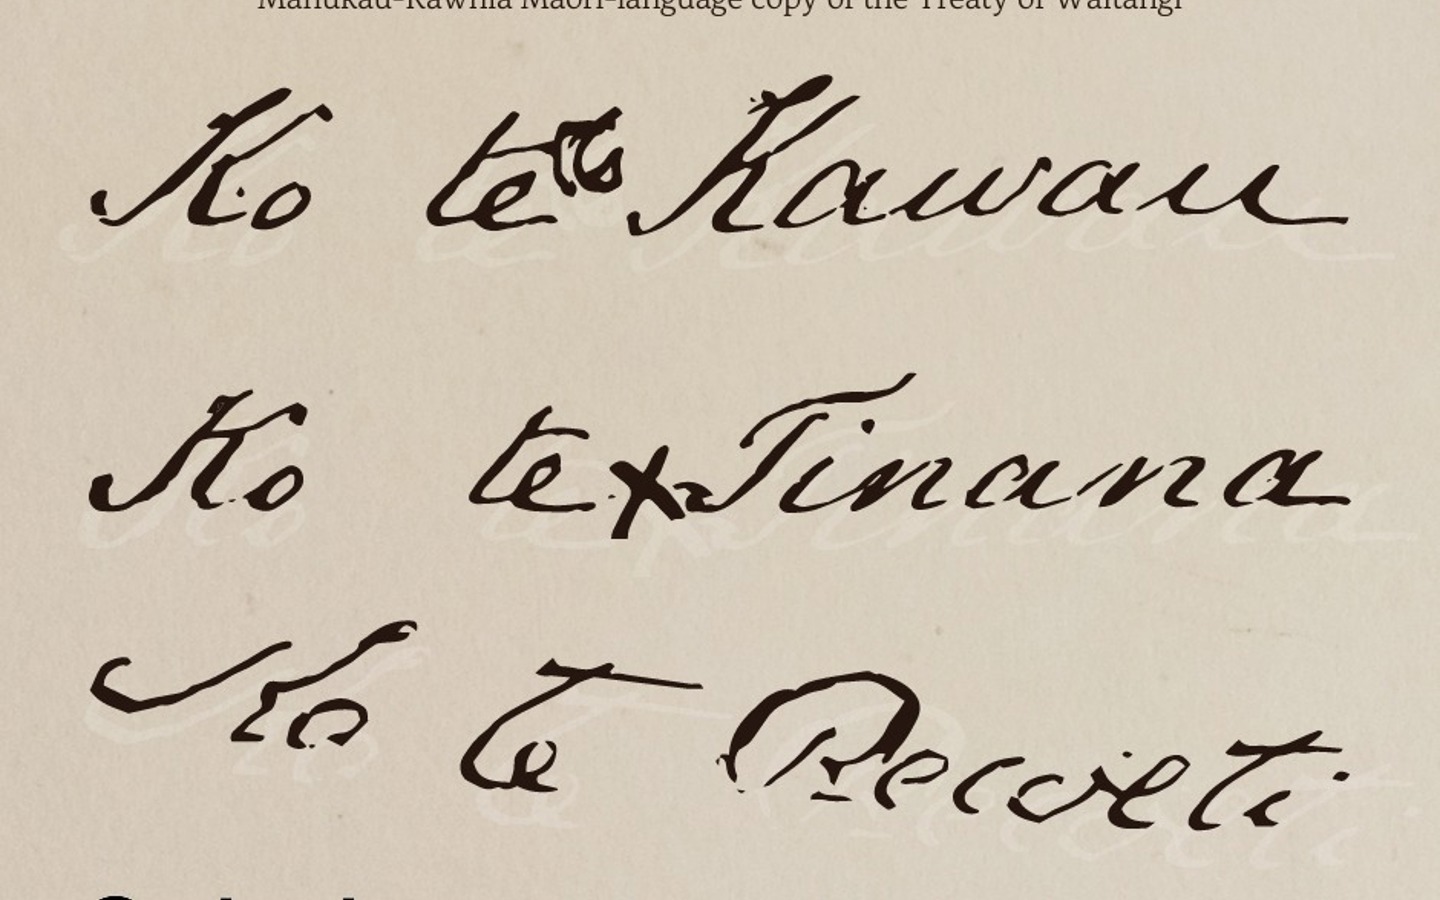 Manukau-Kawhia Māori-language copy of the Treaty of Waitangi
Ko te Kawau
Ko te x Tinana
Ko te Reweti